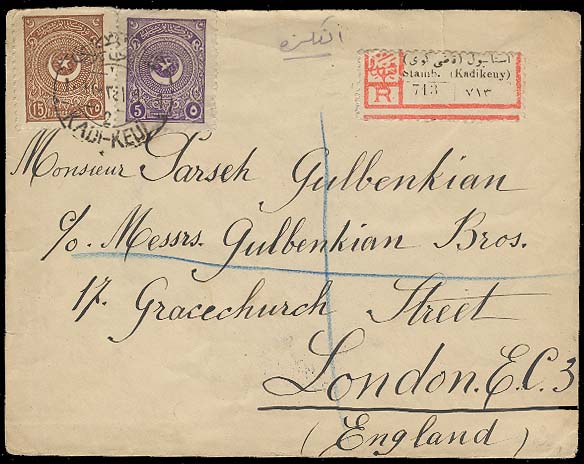 15
5
KADI-KEUI
انگلتره
استانبول (قاضی کوی)
Stamb. (Kadikeuy)
R
713 ٧١٣
Monsieur Parseh Gulbenkian
c/o. Messrs. Gulbenkian Bros.
17. Gracechurch Street
London. E.C. 3
(England)